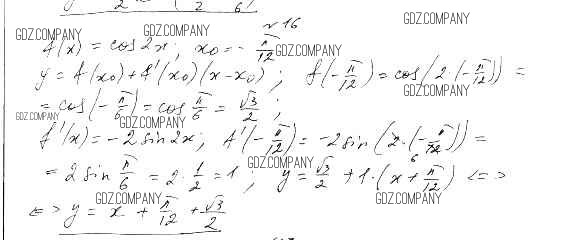 2 (2 6)
N16
f(x) = cos 2x; x₀ = -π/12
y = f(x₀) + f'(x₀)(x - x₀); f(-π/12) = cos(2·(-π/12)) =
= cos(-π/6) = cos π/6 = √3/2;
f'(x) = -2 sin 2x; f'(-π/12) = -2 sin(2·(-π/12)) =
6
= 2 sin π/6 = 2·1/2 = 1; y = √3/2 + 1·(x + π/12) <=>
<=> y = x + π/12 + √3/2
GDZ.COMPANY
GDZ.COMPANY
GDZ.COMPANY
GDZ.COMPANY
GDZ.COMPANY
GDZ.COMPANY
GDZ.COMPANY
GDZ.COMPANY
GDZ.COMPANY
GDZ.COMPANY